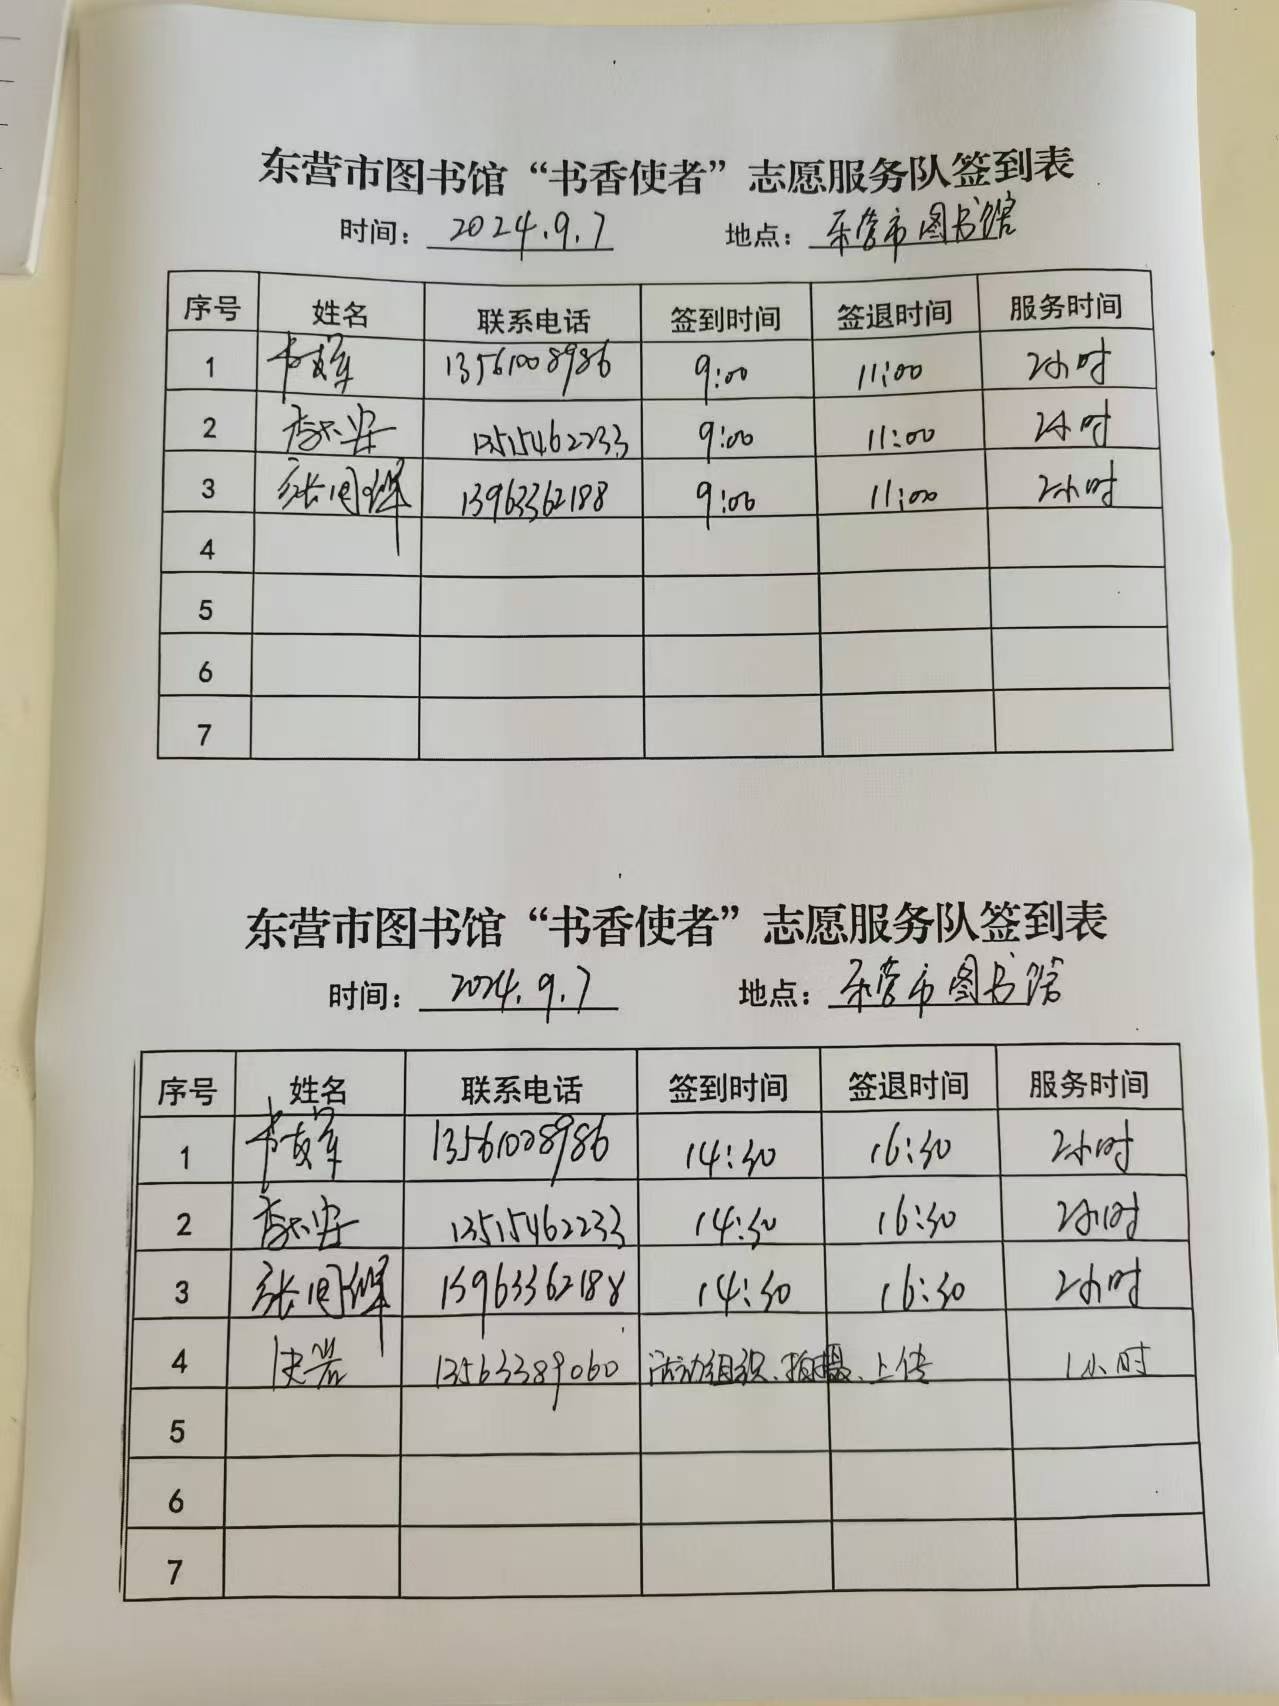 东营市图书馆“书香使者”志愿服务队签到表
时间：2024.9.7 地点：东营市图书馆
序号 姓名 联系电话 签到时间 签退时间 服务时间
1 13561008986 9:00 11:00 2小时
2 13515462233 9:00 11:00 2小时
3 张国辉 13963362188 9:00 11:00 2小时
4
5
6
7
东营市图书馆“书香使者”志愿服务队签到表
时间：2024.9.7 地点：东营市图书馆
序号 姓名 联系电话 签到时间 签退时间 服务时间
1 13561008986 14:30 16:30 2小时
2 13515462233 14:30 16:30 2小时
3 张国辉 13963362188 14:30 16:30 2小时
4 史岩 13563389060 活动组织、拍摄、上传 1小时
5
6
7